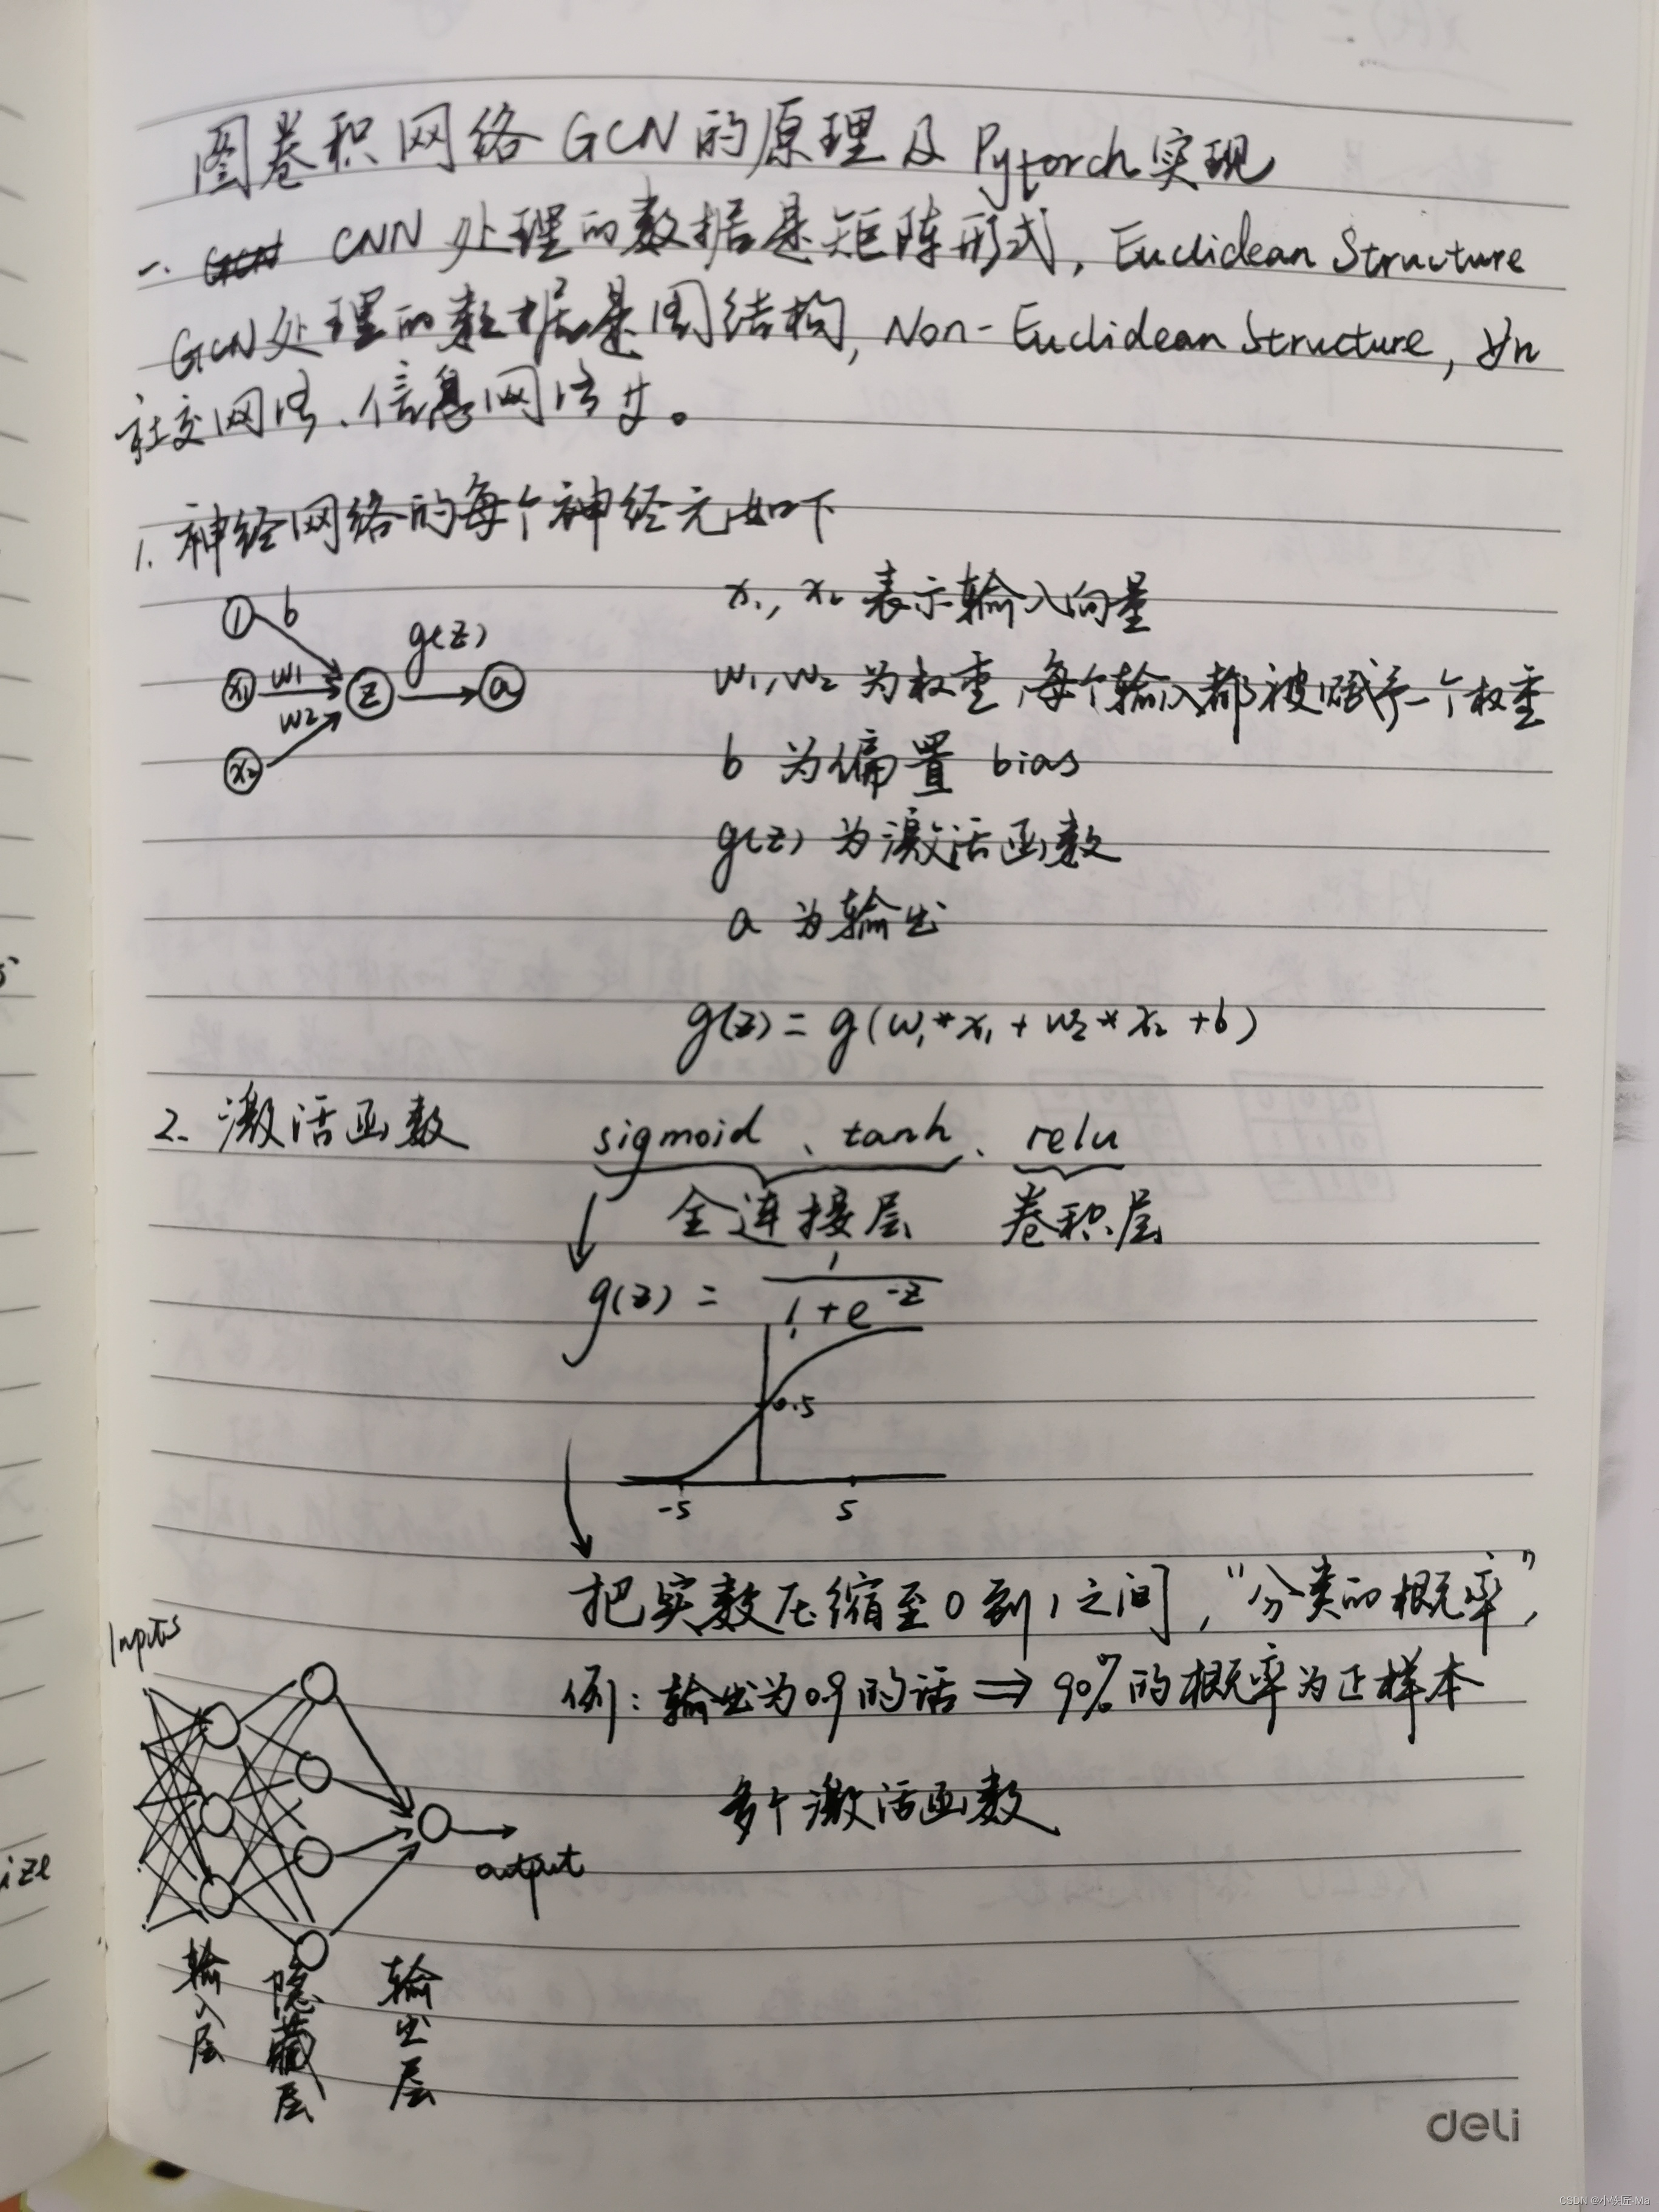 图卷积网络GCN的原理及Pytorch实现
一. CNN处理的数据是矩阵形式, Euclidean Structure
GCN处理的数据是图结构, Non-Euclidean Structure, 如
社交网络、信息网络等。
1. 神经网络的每个神经元如下
1 b
x1 w1 z g(z) a
w2
x2
x1, x2 表示输入向量
w1, w2 为权重,每个输入都被赋予一个权重
b 为偏置 bias
g(z) 为激活函数
a 为输出
g(z) = g(w1*x1 + w2*x2 + b)
2. 激活函数 sigmoid、tanh、relu
全连接层 卷积层
g(z) = 1 / (1+e^-z)
0.5
-5 5
把实数压缩至0到1之间, "分类的概率",
例: 输出为0.9的话 ⇒ 90%的概率为正样本
多个激活函数
Inputs
output
输入层 隐藏层 输出层
deli
ize
CSDN @小铁匠Ma